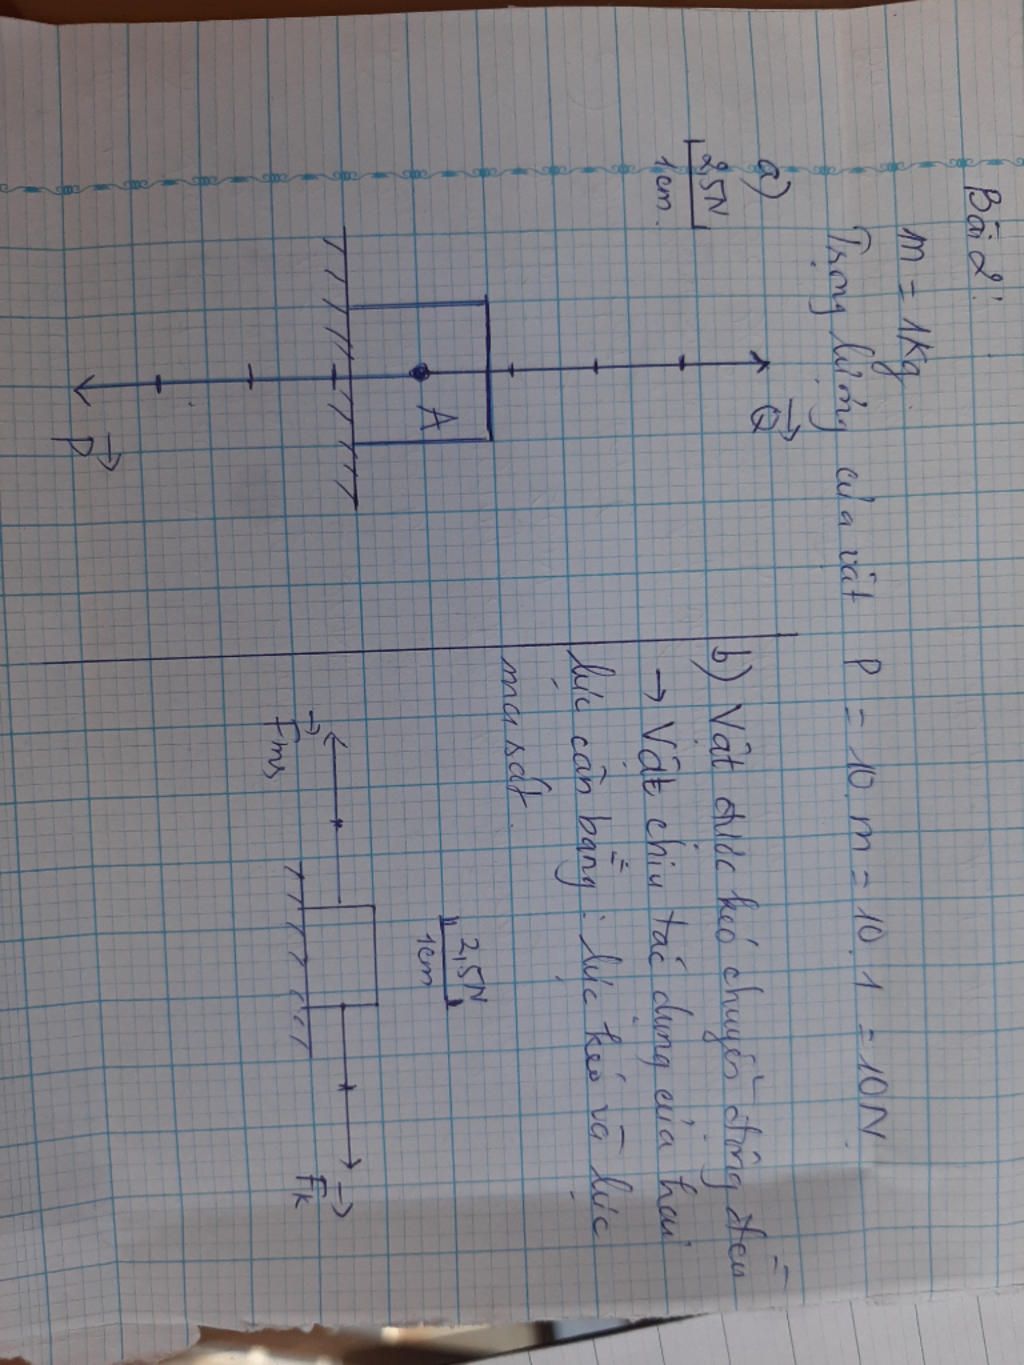 Bài 2:
m = 1kg.
Trọng lượng của vật P = 10.m = 10.1 = 10N.
a)
2,5N
1cm.
Q
A
P
b) Vật được kéo chuyển động đều
→ Vật chịu tác dụng của hai
lực cân bằng: lực kéo và lực
ma sát.
2,5N
1cm
Fms
Fk